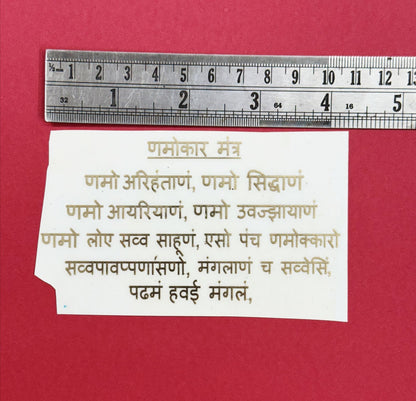 ½ 1 2 3 4 5 6 7 8 9 10 11 12 13
32 1 2 3 64 4 16 5
णमोकार मंत्र
णमो अरिहंताणं, णमो सिद्धाणं
णमो आयरियाणं, णमो उवज्झायाणं
णमो लोए सव्व साहूणं, एसो पंच णमोक्कारो
सव्वपावप्पणासणो, मंगलाणं च सव्वेसिं,
पढमं हवई मंगलं,